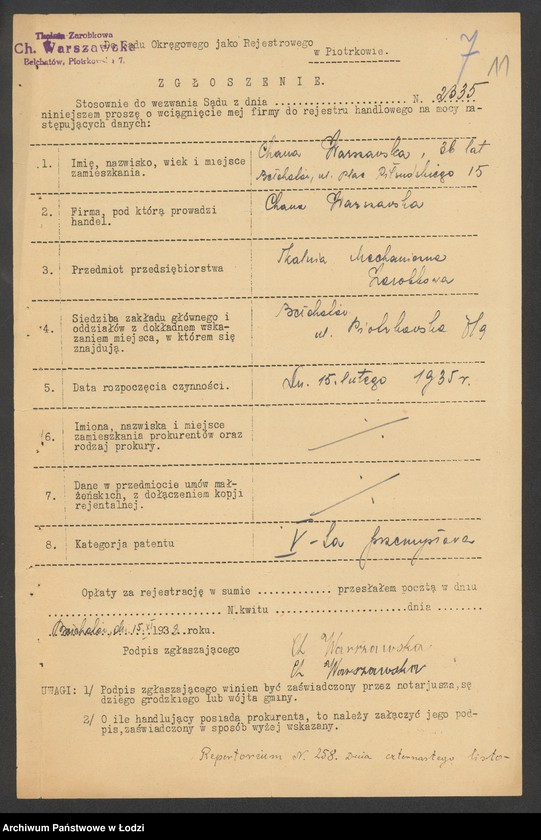 Tkalnia Zarobkowa
Ch. Warszawska
Bełchatów, Piotrkows 7.
Do Sądu Okręgowego jako Rejestrowego
w Piotrkowie.
7
11
ZGŁOSZENIE.
Stosownie do wezwania Sądu z dnia .................... N. 2335
niniejszem proszę o wciągnięcie mej firmy do rejestru handlowego na mocy na-
stępujących danych:
1. Imię, nazwisko, wiek i miejsce
zamieszkania.
Chana Warszawska, 36 lat
Bełchatów, ul. Plac Piłsudskiego 15
2. Firma, pod którą prowadzi
handel.
Chana Warszawska
3. Przedmiot przedsiębiorstwa
Tkalnia Mechaniczna
Zarobkowa
4. Siedziba zakładu głównego i
oddziałów z dokładnem wska-
zaniem miejsca, w którem się
znajdują.
Bełchatów
ul. Piotrkowska
5. Data rozpoczęcia czynności.
Dn. 15. lutego 1935 r.
6. Imiona, nazwiska i miejsce
zamieszkania prokurentów oraz
rodzaj prokury.
7. Dane w przedmiocie umów mał-
żeńskich, z dołączeniem kopji
rejentalnej.
8. Kategorja patentu
V-ta przemysłowa
Opłaty za rejestrację w sumie ............ przesłałem pocztą w dniu
.................... N.kwitu .................... dnia ........
Bełchatów, dn. 15. 193 . roku.
Podpis zgłaszającego
Ch Warszawska
Ch Warszawska
UWAGI: 1/ Podpis zgłaszającego winien być zaświadczony przez notarjusza, sę
dziego grodzkiego lub wójta gminy.
2/ O ile handlujący posiada prokurenta, to należy załączyć jego pod-
pis, zaświadczony w sposób wyżej wskazany.
Repertorium N. 258. Dnia czternastego listo-
Archiwum Państwowe w Łodzi